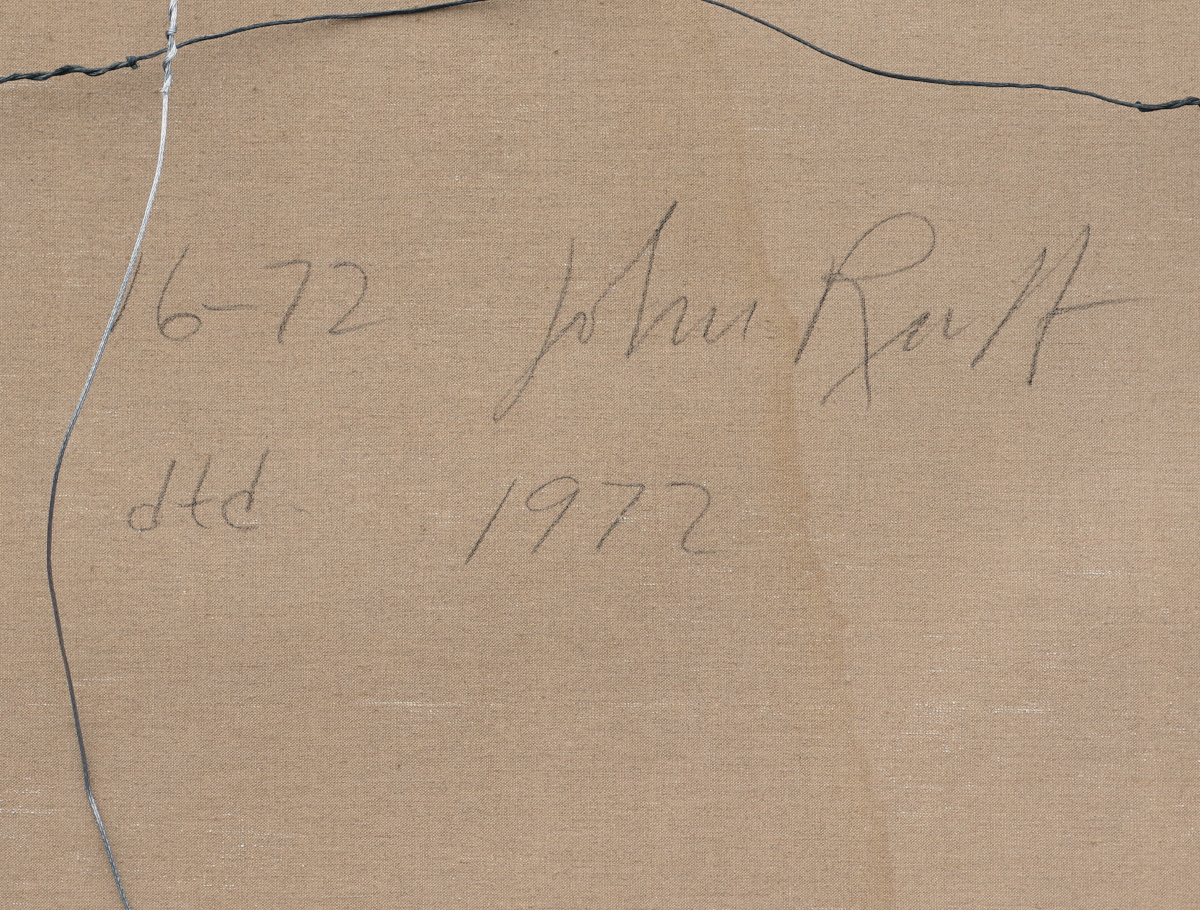 16-72 John
dtd 1972